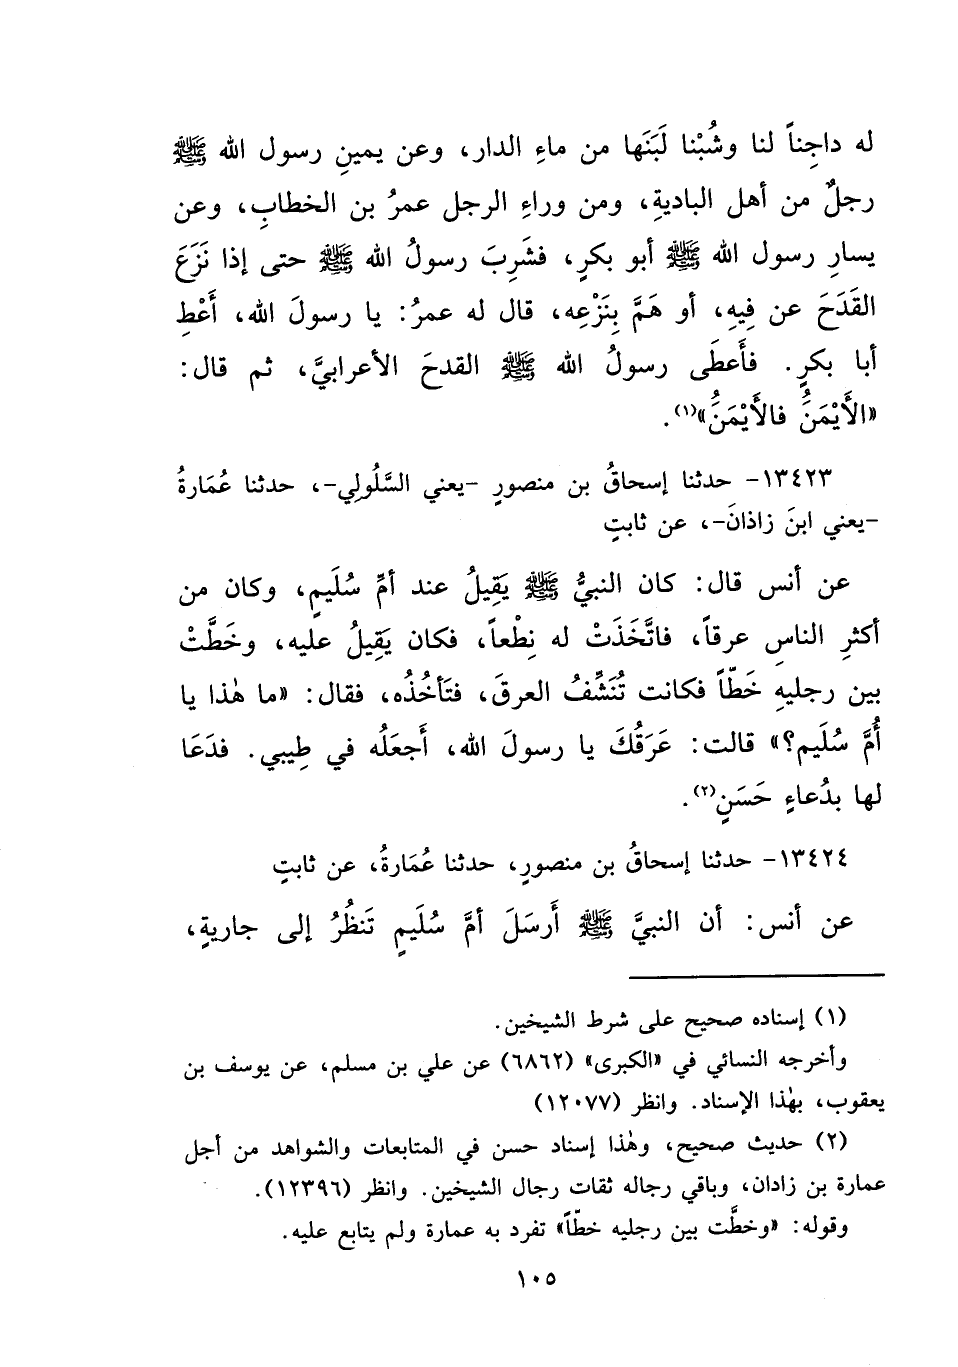 له داجِناً لنا وشُبْنا لَبَنَها من ماءِ الدار، وعن يمينِ رسول الله ﷺ
رجلٌ من أهل الباديةِ، ومن وراءِ الرجل عمرُ بن الخطابِ، وعن
يسارِ رسول الله ﷺ أبو بكرٍ، فشَرِبَ رسولُ الله ﷺ حتى إذا نَزَعَ
القَدَحَ عن فِيهِ، أو هَمَّ بِنَزْعِه، قال له عمرُ: يا رسولَ الله، أَعْطِ
أبا بكرٍ. فأَعطَى رسولُ الله ﷺ القدحَ الأعرابيَّ، ثم قال:
«الأَيْمَنَُ فالأَيْمَنَُ»(١).
١٣٤٢٣- حدثنا إسحاقُ بن منصورٍ -يعني السَّلُولِي-، حدثنا عُمَارةُ
-يعني ابنَ زاذانَ-، عن ثابتٍ
عن أنس قال: كان النبيُّ ﷺ يَقِيلُ عند أمِّ سُلَيمٍ، وكان من
أكثرِ الناسِ عرقاً، فاتَّخَذَتْ له نِطْعاً، فكان يَقِيلُ عليه، وخَطَّتْ
بين رجليهِ خَطّاً فكانت تُنَشِّفُ العرقَ، فتَأخُذُه، فقال: «ما هٰذا يا
أُمَّ سُلَيم؟» قالت: عَرَقُكَ يا رسولَ الله، أَجعَلُه في طِيبي. فدَعَا
لها بدُعاءٍ حَسَنٍ(٢).
١٣٤٢٤- حدثنا إسحاقُ بن منصورٍ، حدثنا عُمَارةُ، عن ثابتٍ
عن أنس: أن النبيَّ ﷺ أَرسَلَ أمَّ سُلَيمٍ تَنظُرُ إلى جاريةٍ،
(١) إسناده صحيح على شرط الشيخين.
وأخرجه النسائي في «الكبرى» (٦٨٦٢) عن علي بن مسلم، عن يوسف بن
يعقوب، بهٰذا الإسناد. وانظر (١٢٠٧٧)
(٢) حديث صحيح، وهٰذا إسناد حسن في المتابعات والشواهد من أجل
عمارة بن زادان، وباقي رجاله ثقات رجال الشيخين. وانظر (١٢٣٩٦).
وقوله: «وخطَّت بين رجليه خطّاً» تفرد به عمارة ولم يتابع عليه.
١٠٥